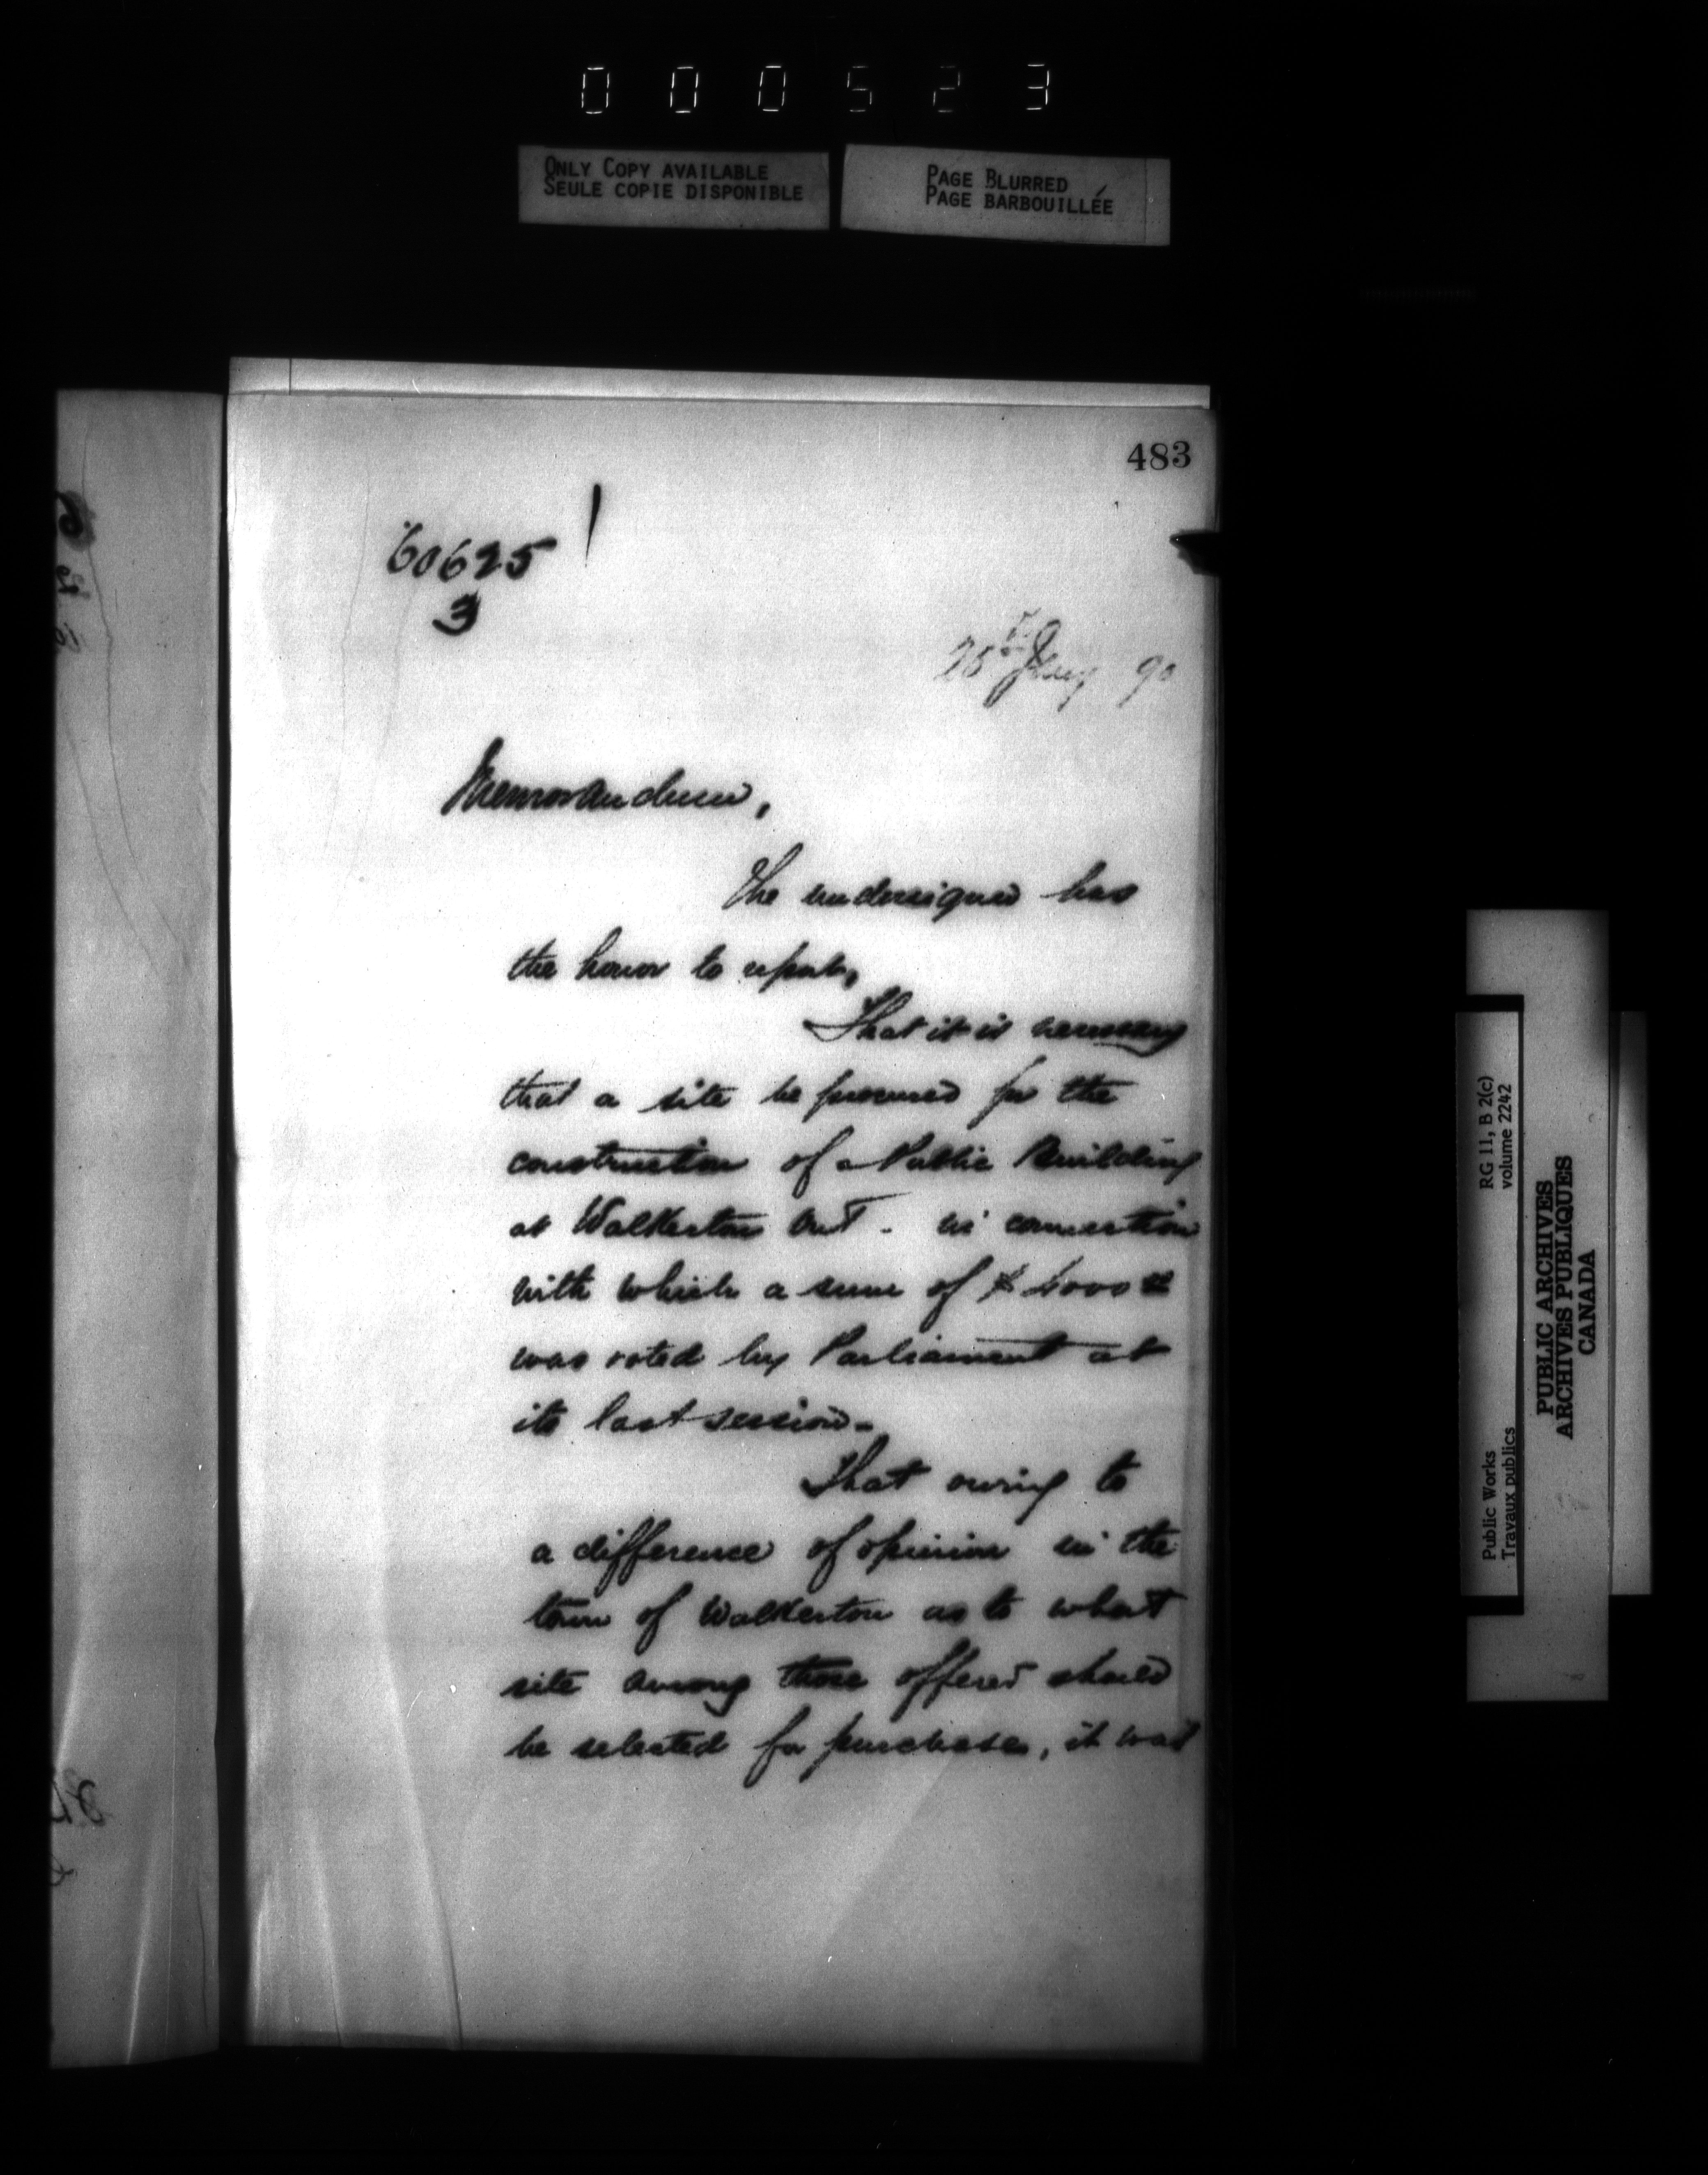 000523
ONLY COPY AVAILABLE
SEULE COPIE DISPONIBLE
PAGE BLURRED
PAGE BARBOUILLÉE
483
60625
3
Jany 90
Memorandum,
The undersigned has
the honor to report,
That it is necessary
that a site be procured for the
construction of a Public Building
at Walkerton Ont. in connection
with which a sum of $
was voted by Parliament at
its last session.
That owing to
a difference of opinion in the
town of Walkerton as to what
site among those offered should
be selected for purchase, it was
Public Works
Travaux publics
RG 11, B 2(c)
volume 2242
PUBLIC ARCHIVES
ARCHIVES PUBLIQUES
CANADA